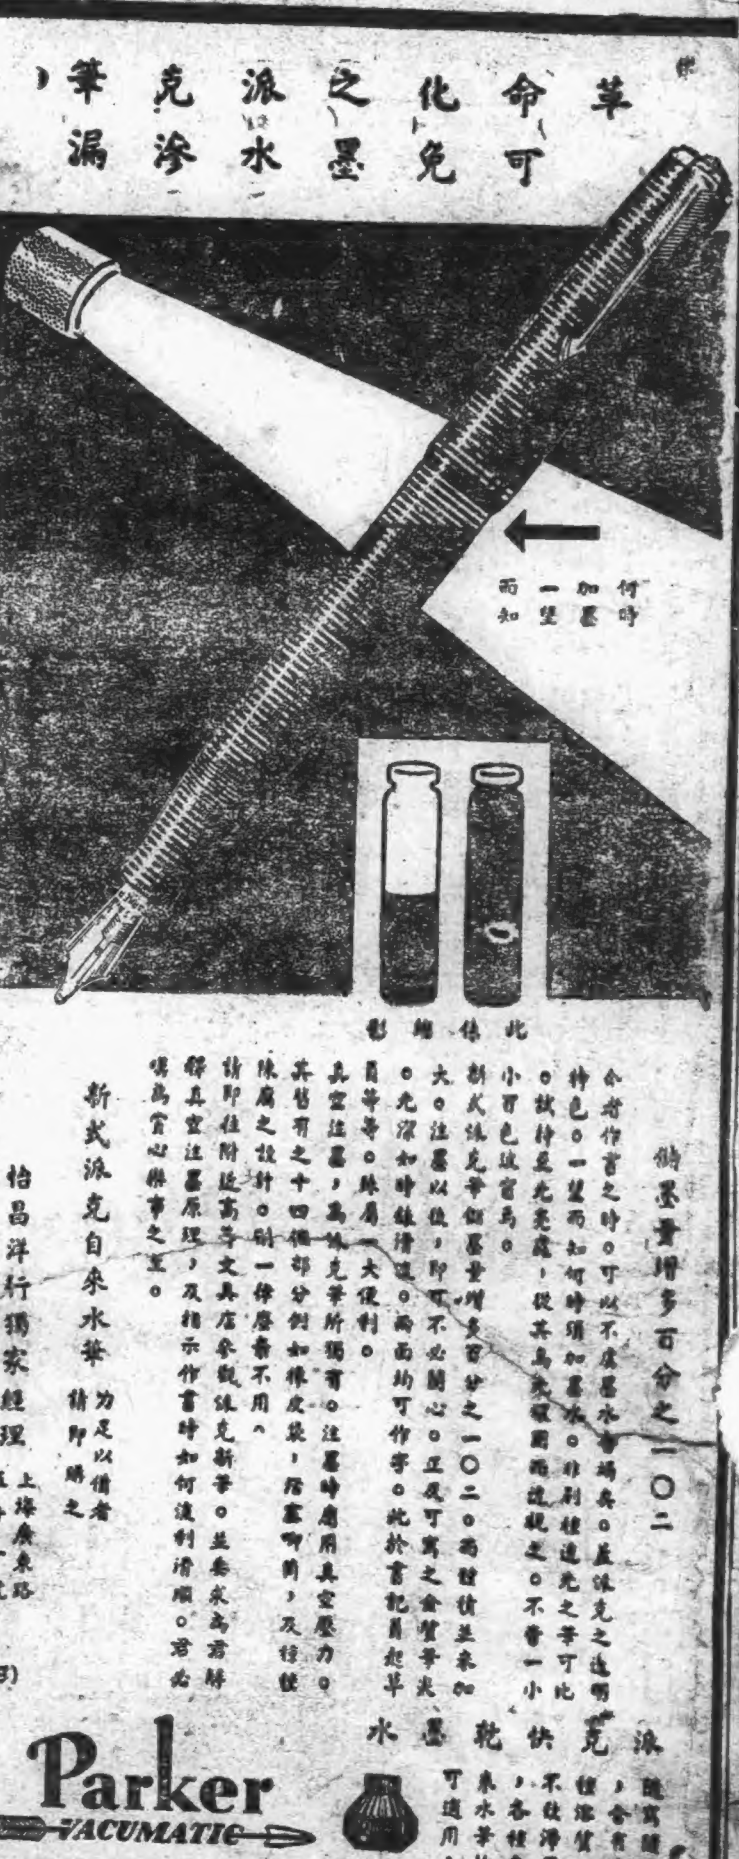 革命化之派克筆
可免墨水滲漏
何時
加墨
一望
而知
此係縮影
儲墨量增多百分之一〇二
命者作書之時。可以不虞墨水告竭矣。蓋派克之透明
特色。一望而知何時須加墨水。非別種透光之筆可比
。試持至光亮處,從其烏黑環圈而透視之。不啻一小
小百色玻窗焉。
新式派克筆儲墨量增多百分之一〇二。而體積並未加
大。注墨以後,即可不必關心。正反可寫之金質筆尖
。尤深如時錶滑溜。兩面均可作字。此於書記員起草
員等等。殊屬一大便利。
真空注墨,為派克筆所獨有。注墨時應用真空壓力。
其舊有之十四個部分例如橡皮袋,活塞唧筒,及種種
陳腐之設計。則一律廢棄不用。
請即往附近高等文具店參觀派克新筆。並要求為君解
釋真空注墨原理,及指示作書時如何流利滑順。君必
嘆為賞心樂事之至。
新式派克自來水筆
力足以備者
請即購之
怡昌洋行獨家經理
上海廣東路
派克快乾墨水
Parker
VACUMATIC